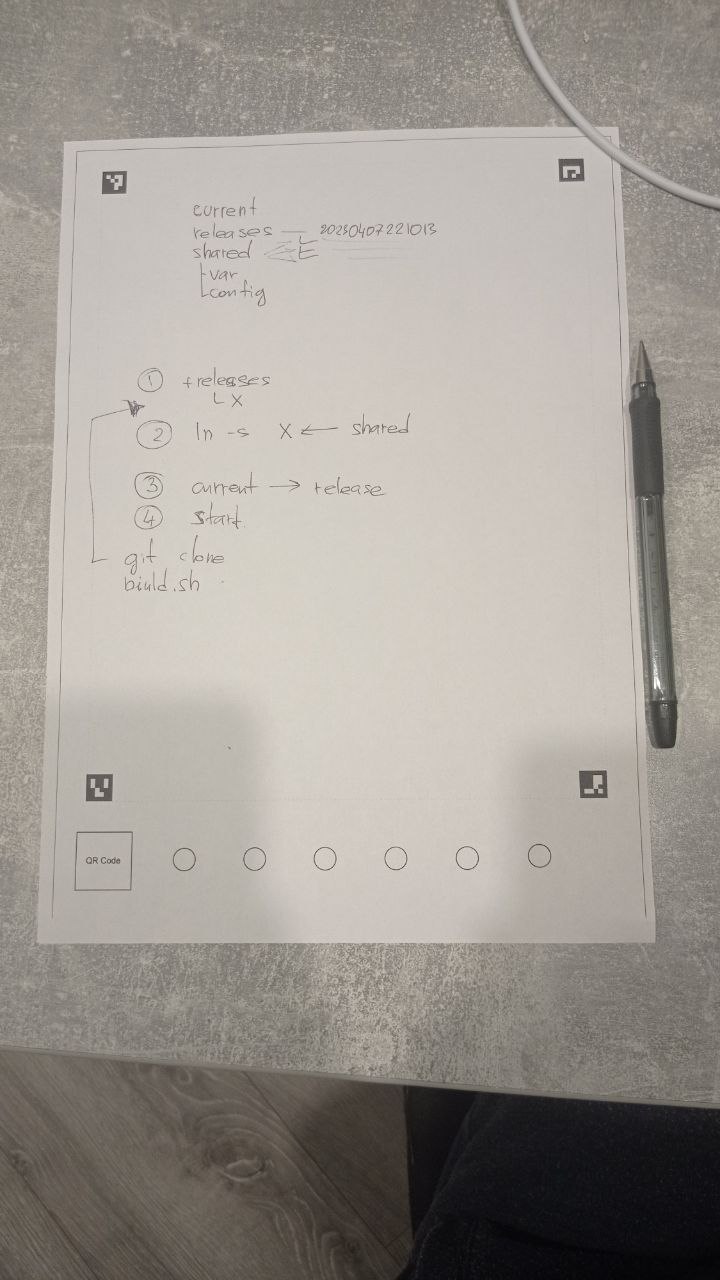 current
releases — 20230407221013
shared
var
config
① + releases
└ X
② ln -s X ← shared
③ current → release
④ start
git clone
biuld.sh
QR Code